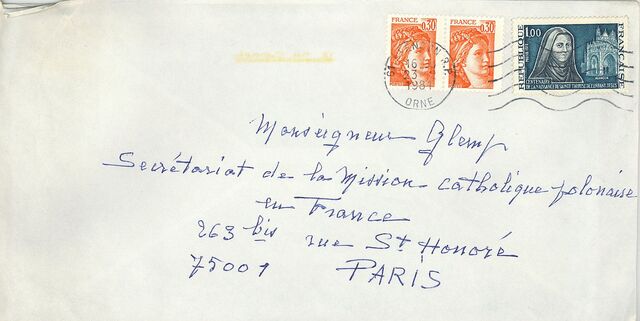 FRANCE 0,30
FRANCE 0,30
1,00
REPUBLIQUE FRANÇAISE
CENTENAIRE
DE LA NAISSANCE DE SAINTE THERESE DE L'ENFANT JESUS
ALENCON
16 H
23
1981
ORNE
Monseigneur Glemp
Secrétariat de la Mission catholique polonaise
en France
263 bis rue St Honoré
75001 PARIS